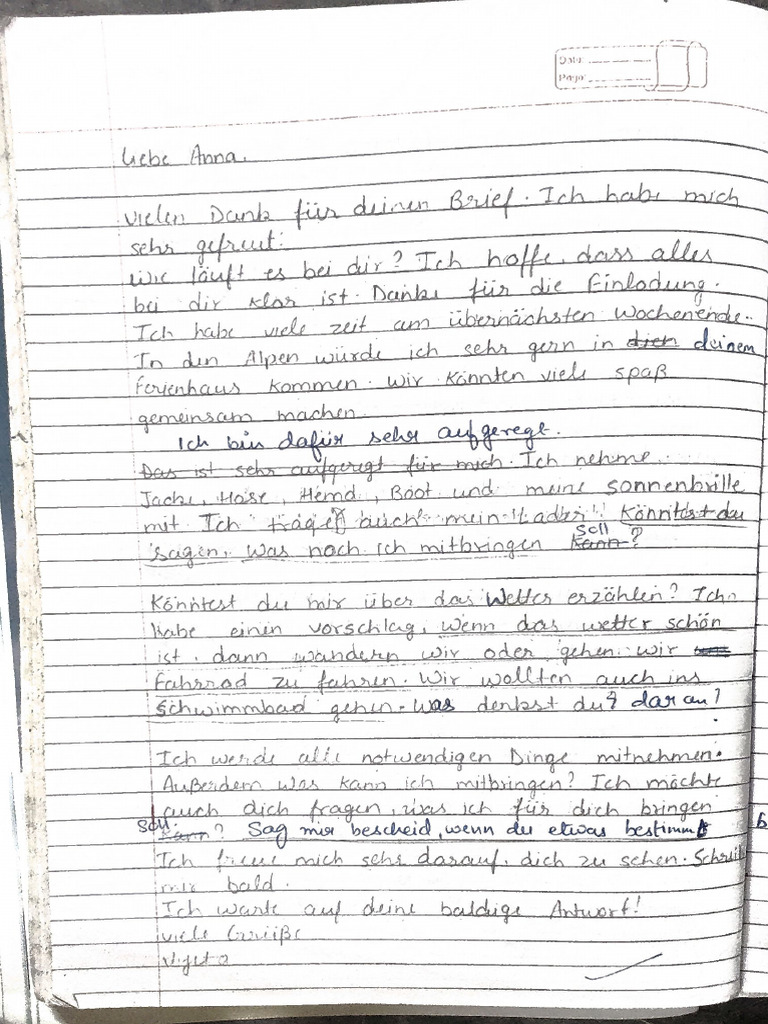 Date:
Page:
Liebe Anna,
vielen Dank für deinen Brief. Ich habe mich
sehr gefreut.
Wie läuft es bei dir? Ich hoffe, dass alles
bei dir klar ist. Danke für die Einlodung.
Ich habe viele zeit am übernächsten Wochenende.
In den Alpen würde ich sehr gern in dich deinem
Ferienhaus kommen. Wir könnten viele spaß
gemeinsam machen.
Ich bin dafür sehr aufgeregt.
Das ist sehr aufgeregt für mich. Ich nehme
Jacke, Hose, Hemd, Boot und meine sonnenbrille
mit. Ich trage auch mein. Könntest du
soll
sagen, was noch ich mitbringen kann?
Könntest du mir über das Wetter erzählen? Ich
habe einen vorschlag, wenn das wetter schön
ist, dann wandern wir oder gehen wir
Fahrrad zu fahren. Wir wollten auch ins
Schwimmbad gehen. Was denkst du? daran?
Ich werde alle notwendigen Dinge mitnehmen.
Außerdem was kann ich mitbringen? Ich möchte
auch dich fragen, was ich für dich bringen
soll
kann? Sag mir bescheid, wenn du etwas bestimmt
b
Ich freue mich sehr darauf, dich zu sehen. Schreib
mir bald.
Ich warte auf deine baldige Antwort!
viele Grüße